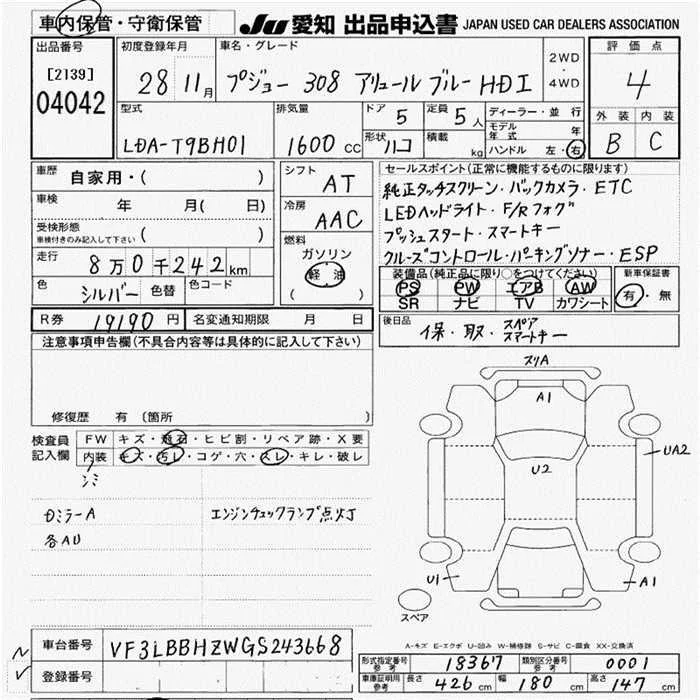 車内保管・守衛保管 JU 愛知 出品申込書 JAPAN USED CAR DEALERS ASSOCIATION
出品番号 初度登録年月 車名・グレード 評価点
[2139] 28 11月 プジョー 308 アリュール ブルーHDI 2WD・4WD 4
04042
型式 排気量 ドア 5 定員 5人 ディーラー・並行 外装 内装
LDA-T9BH01 1600cc 形状 ハコ 積載 kg モデル年式 年 B C
ハンドル 左・右
車歴 自家用・( ) シフト AT セールスポイント(正常に機能するものに限ります)
車検 年 月( 日) 冷房 AAC 純正タッチスクリーン・バックカメラ・ETC
LEDヘッドライト・F/Rフォグ
受検形態 ( )
車検付きのみ記入して下さい
燃料 プッシュスタート・スマートキー
走行 8万0千242km ガソリン クルーズコントロール・パーキングソナー・ESP
軽油
( )
装備品(純正品に限り○をつけてください) 新車保証書
色 シルバー 色替 色コード PS PW エアB AW 有・無
SR ナビ TV カワシート
R券 19190円 名変通知期限 月 日 後日品 保・取・スペア スマートキー
注意事項申告欄(不具合内容等は具体的に記入して下さい)
修復歴 有 (箇所 )
スリA
A1
U2
UA2
U1
A1
スペア
検査員記入欄 FW キズ・飛石・ヒビ割・リペア跡・X要
内装 キズ・汚レ・コゲ・穴・スレ・キレ・破レ
シミ
ミラーA エンジンチェックランプ点灯
各AU
A-キズ E-エクボ U-凹み W-補修跡 S-サビ C-腐食 XX-交換済
車台番号 VF3LBBHZWGS243668
登録番号
形式指定番号 参考 18367 類別区分番号 参考 0001
車庫証明用 参考 長さ 426cm 幅 180cm 高さ 147cm